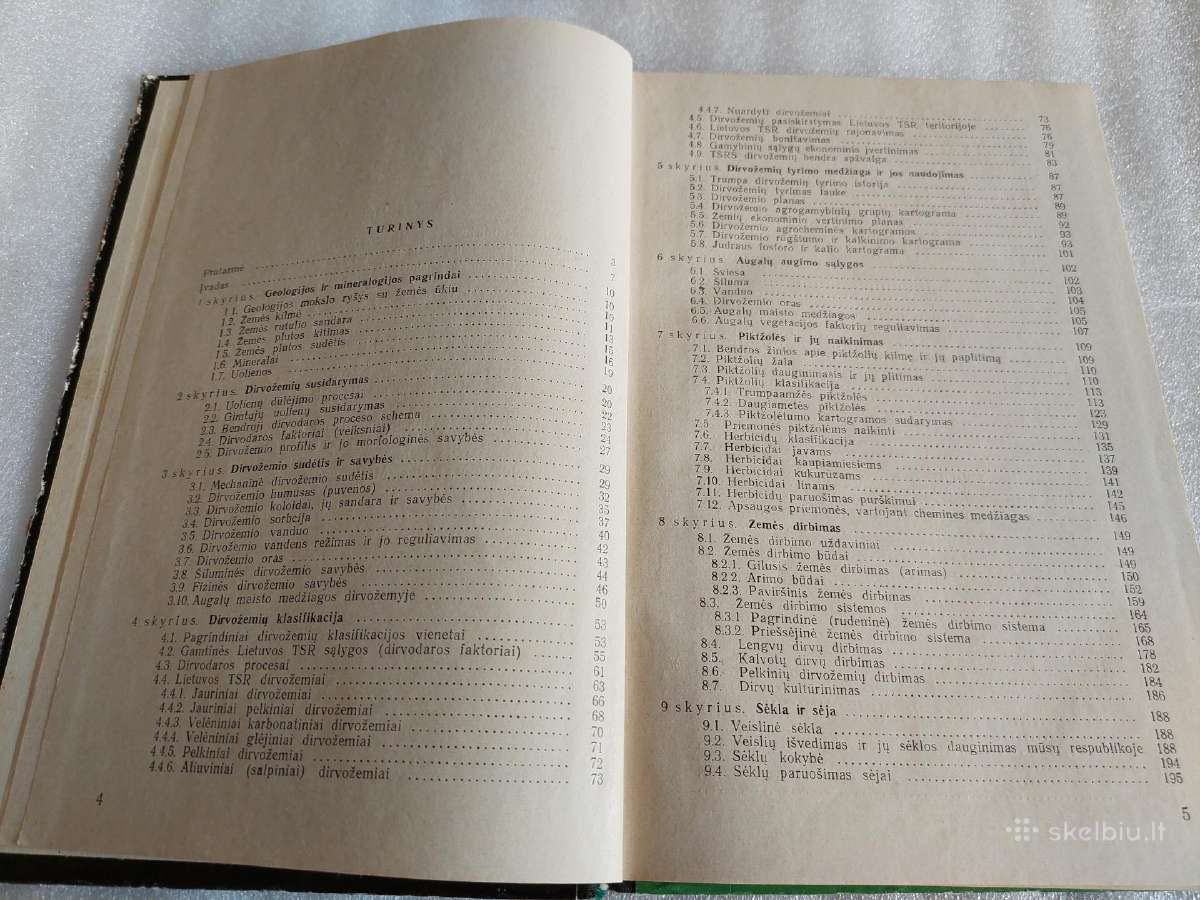 TURINYS
Pratarmė 3
Įvadas 7
1 skyrius. Geologijos ir mineralogijos pagrindai 10
1.1. Geologijos mokslo ryšys su žemės ūkiu
1.2. Žemės kilmė
1.3. Žemės rutulio sandara
1.4. Žemės plutos kitimas
1.5. Žemės plutos sudėtis
1.6. Mineralai
1.7. Uolienos 19
2 skyrius. Dirvožemių susidarymas 20
2.1. Uolienų dūlėjimo procesai 20
2.2. Gimtųjų uolienų susidarymas 22
2.3. Bendroji dirvodaros proceso schema 23
2.4. Dirvodaros faktoriai (veiksniai) 24
2.5. Dirvožemio profilis ir jo morfologinės savybės 27
3 skyrius. Dirvožemio sudėtis ir savybės 29
3.1. Mechaninė dirvožemio sudėtis 29
3.2. Dirvožemio humusas (puvenos) 32
3.3. Dirvožemio koloidai, jų sandara ir savybės 35
3.4. Dirvožemio sorbcija 37
3.5. Dirvožemio vanduo 40
3.6. Dirvožemio vandens režimas ir jo reguliavimas 42
3.7. Dirvožemio oras 43
3.8. Šiluminės dirvožemio savybės 44
3.9. Fizinės dirvožemio savybės 46
3.10. Augalų maisto medžiagos dirvožemyje 50
4 skyrius. Dirvožemių klasifikacija 53
4.1. Pagrindiniai dirvožemių klasifikacijos vienetai 53
4.2. Gamtinės Lietuvos TSR sąlygos (dirvodaros faktoriai) 55
4.3. Dirvodaros procesai 61
4.4. Lietuvos TSR dirvožemiai 63
4.4.1. Jauriniai dirvožemiai 66
4.4.2. Jauriniai pelkiniai dirvožemiai 68
4.4.3. Velėniniai karbonatiniai dirvožemiai 70
4.4.4. Velėniniai glėjiniai dirvožemiai 71
4.4.5. Pelkiniai dirvožemiai 72
4.4.6. Aliuviniai (salpiniai) dirvožemiai 73
4
4.4.7. Nuardyti dirvožemiai 73
4.5. Dirvožemių pasiskirstymas Lietuvos TSR teritorijoje 76
4.6. Lietuvos TSR dirvožemių rajonavimas 76
4.7. Dirvožemių bonitavimas 79
4.8. Gamybinių sąlygų ekonominis įvertinimas 81
4.9. TSRS dirvožemių bendra apžvalga 83
5 skyrius. Dirvožemių tyrimo medžiaga ir jos naudojimas 87
5.1. Trumpa dirvožemių tyrimo istorija 87
5.2. Dirvožemių tyrimas lauke 87
5.3. Dirvožemio planas 89
5.4. Dirvožemio agrogamybinių grupių kartograma 89
5.5. Žemių ekonominio vertinimo planas 92
5.6. Dirvožemio agrocheminės kartogramos 93
5.7. Dirvožemio rūgštumo ir kalkinimo kartograma 93
5.8. Judraus fosforo ir kalio kartograma 101
6 skyrius. Augalų augimo sąlygos 102
6.1. Šviesa 102
6.2. Šiluma 103
6.3. Vanduo 104
6.4. Dirvožemio oras 105
6.5. Augalų maisto medžiagos 105
6.6. Augalų vegetacijos faktorių reguliavimas 107
7 skyrius. Piktžolės ir jų naikinimas 109
7.1. Bendros žinios apie piktžolių kilmę ir jų paplitimą 109
7.2. Piktžolių žala 110
7.3. Piktžolių dauginimasis ir jų plitimas 110
7.4. Piktžolių klasifikacija 113
7.4.1. Trumpaamžės piktžolės 113
7.4.2. Daugiametės piktžolės 123
7.4.3. Piktžolėtumo kartogramos sudarymas 129
7.5. Priemonės piktžolėms naikinti 131
7.6. Herbicidų klasifikacija 135
7.7. Herbicidai javams 137
7.8. Herbicidai kaupiamiesiems 139
7.9. Herbicidai kukurūzams 141
7.10. Herbicidai linams 142
7.11. Herbicidų paruošimas purškimui 145
7.12. Apsaugos priemonės, vartojant chemines medžiagas 146
8 skyrius. Žemės dirbimas 149
8.1. Žemės dirbimo uždaviniai 149
8.2. Žemės dirbimo būdai 149
8.2.1. Gilusis žemės dirbimas (arimas) 150
8.2.2. Arimo būdai 152
8.2.3. Paviršinis žemės dirbimas 159
8.3. Žemės dirbimo sistemos 164
8.3.1 Pagrindinė (rudeninė) žemės dirbimo sistema 165
8.3.2 Priešsėjinė žemės dirbimo sistema 168
8.4. Lengvų dirvų dirbimas 178
8.5. Kalvotų dirvų dirbimas 182
8.6. Pelkinių dirvožemių dirbimas 184
8.7. Dirvų kultūrinimas 186
9 skyrius. Sėkla ir sėja 188
9.1. Veislinė sėkla 188
9.2. Veislių išvedimas ir jų sėklos dauginimas mūsų respublikoje 188
9.3. Sėklų kokybė 194
9.4. Sėklų paruošimas sėjai 195
5
skelbiu.lt